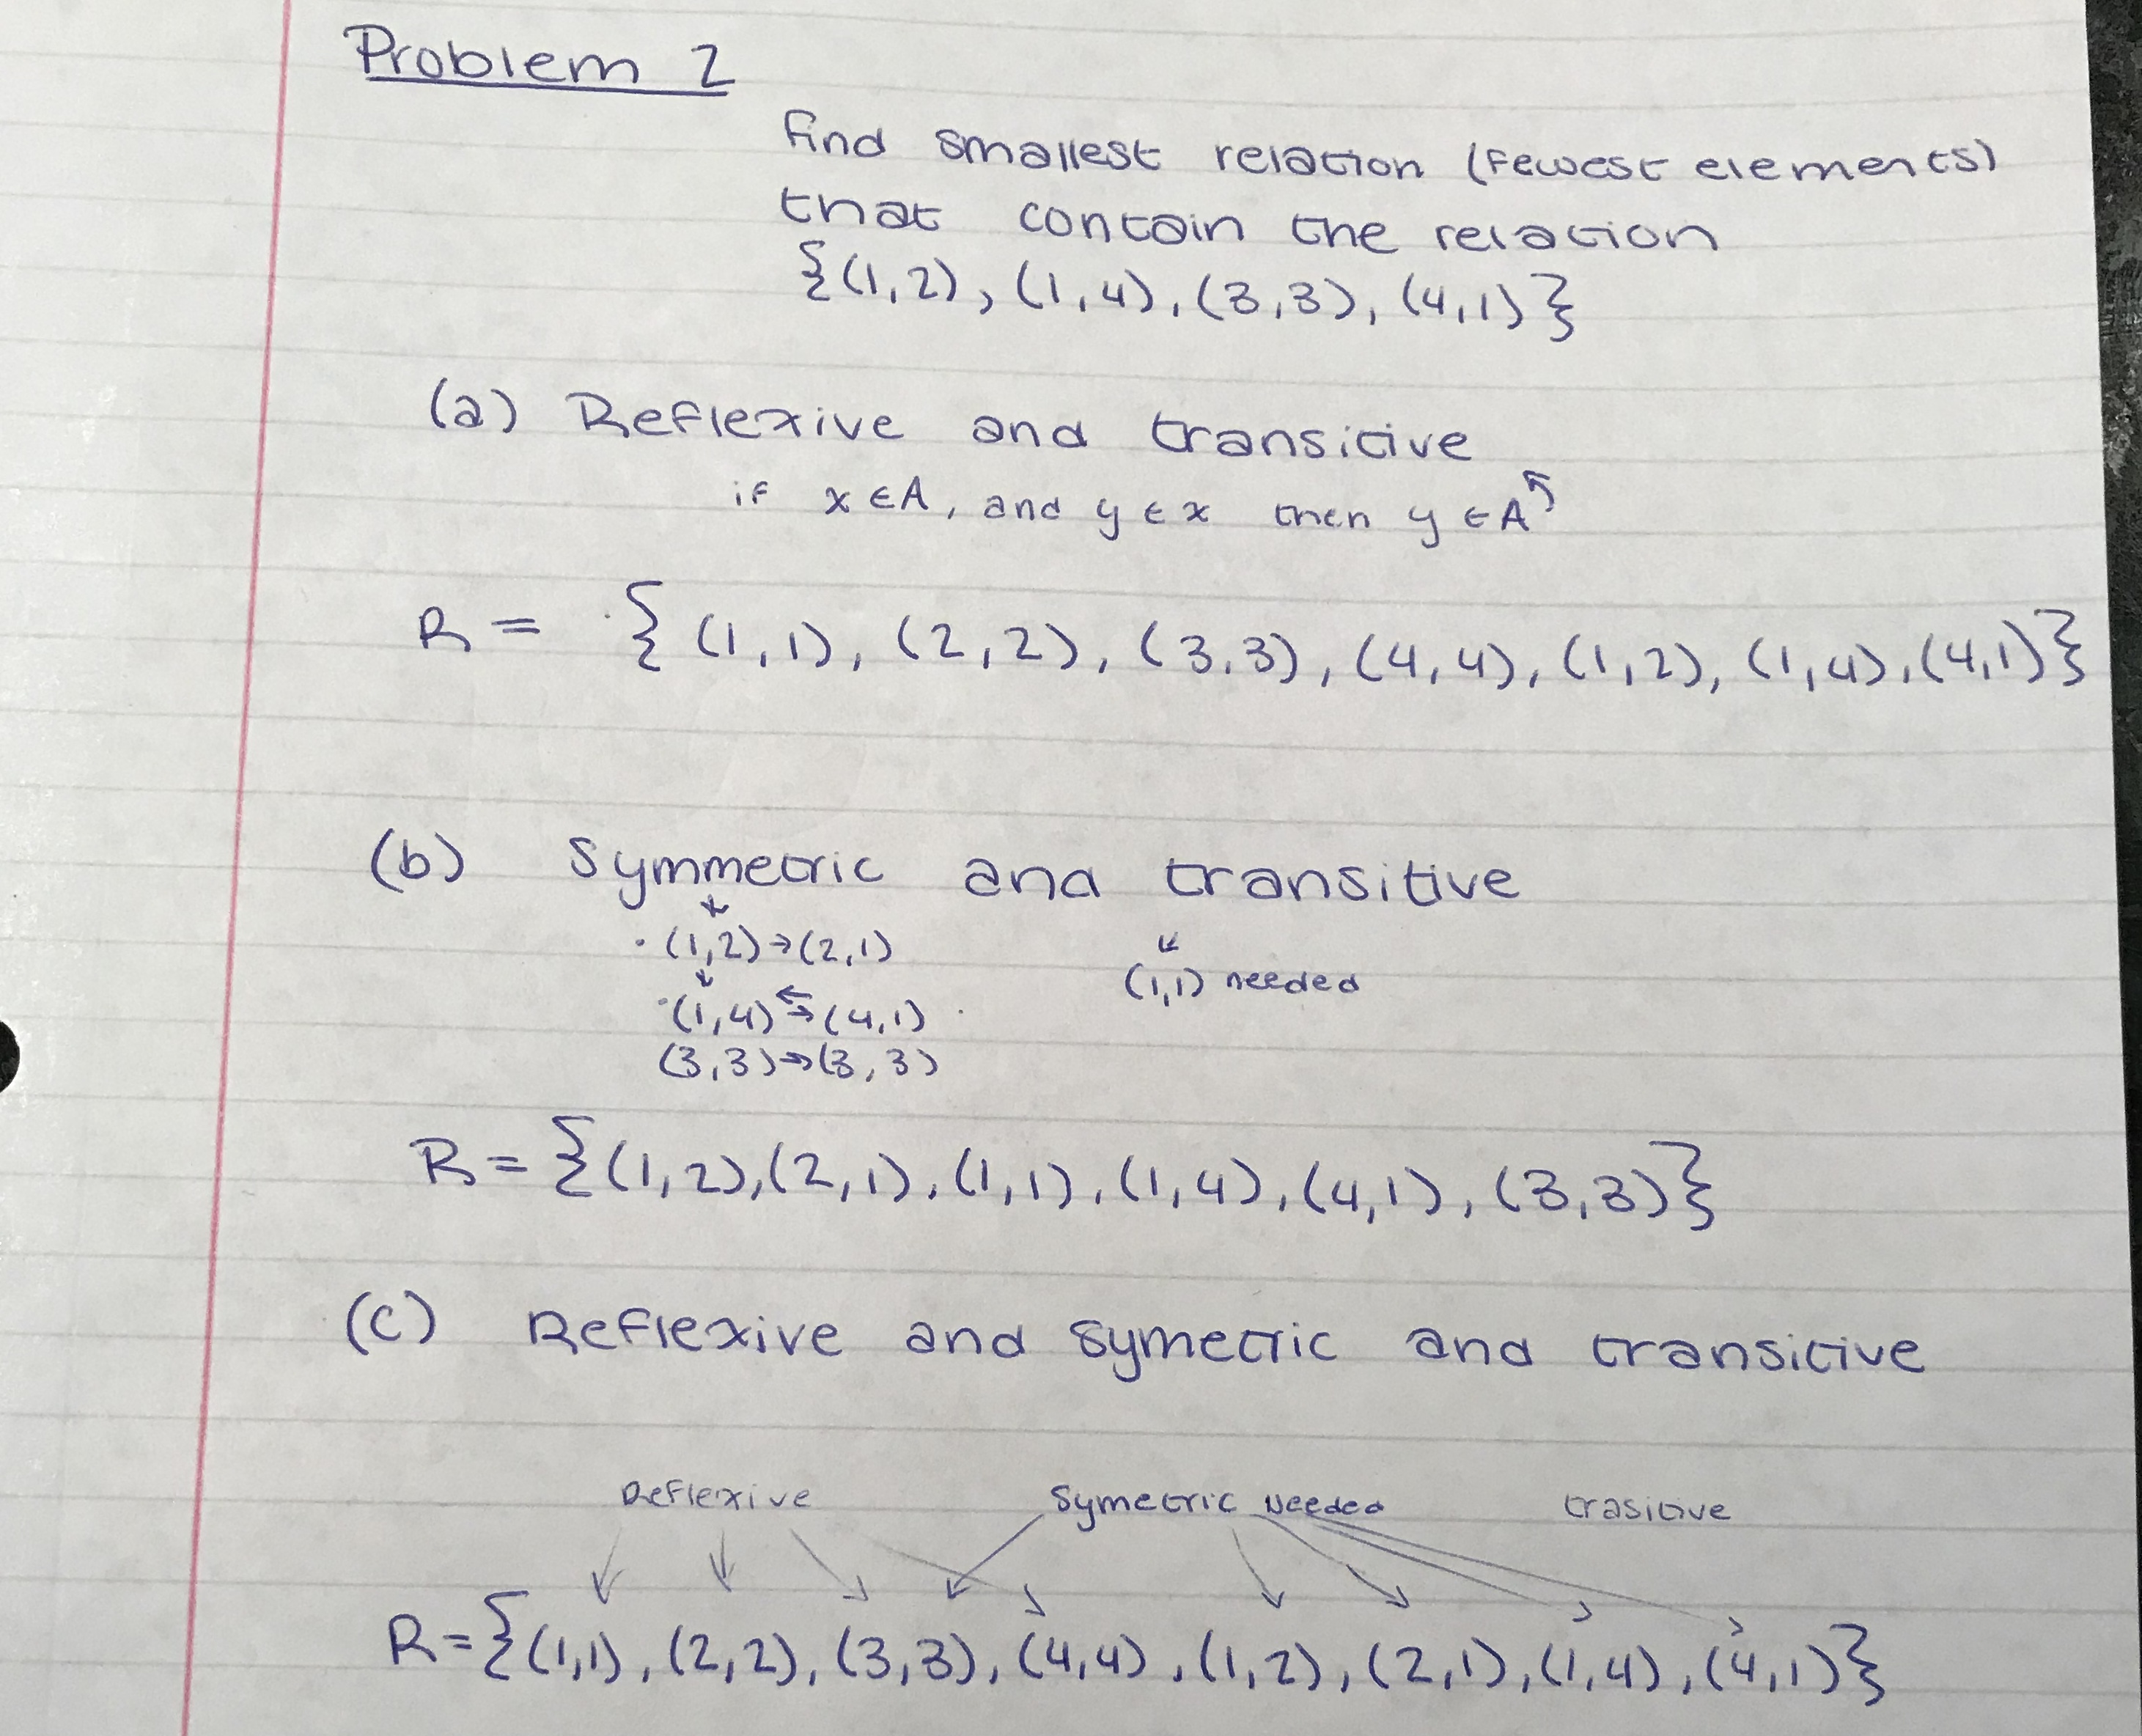 Problem 2
find smallest relation (fewest elements)
that contain the relation
{(1,2), (1,4), (3,3), (4,1)}
(a) Reflexive and transitive
if x ∈ A, and y ∈ x then y ∈ A
R = {(1,1), (2,2), (3,3), (4,4), (1,2), (1,4), (4,1)}
(b) Symmetric and transitive
(1,2)→(2,1)
(1,1) needed
(1,4)⇆(4,1)
(3,3)→(3,3)
R = {(1,2),(2,1),(1,1),(1,4),(4,1),(3,3)}
(c) Reflexive and symetric and transitive
Reflexive symetric needed trasitive
R={(1,1),(2,2),(3,3),(4,4),(1,2),(2,1),(1,4),(4,1)}